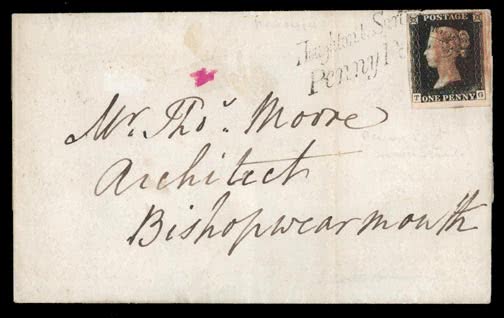 Houghton le Spri
Penny Po
POSTAGE
T ONE PENNY G
Mr. Thos. Moore
Architect
Bishopwearmouth